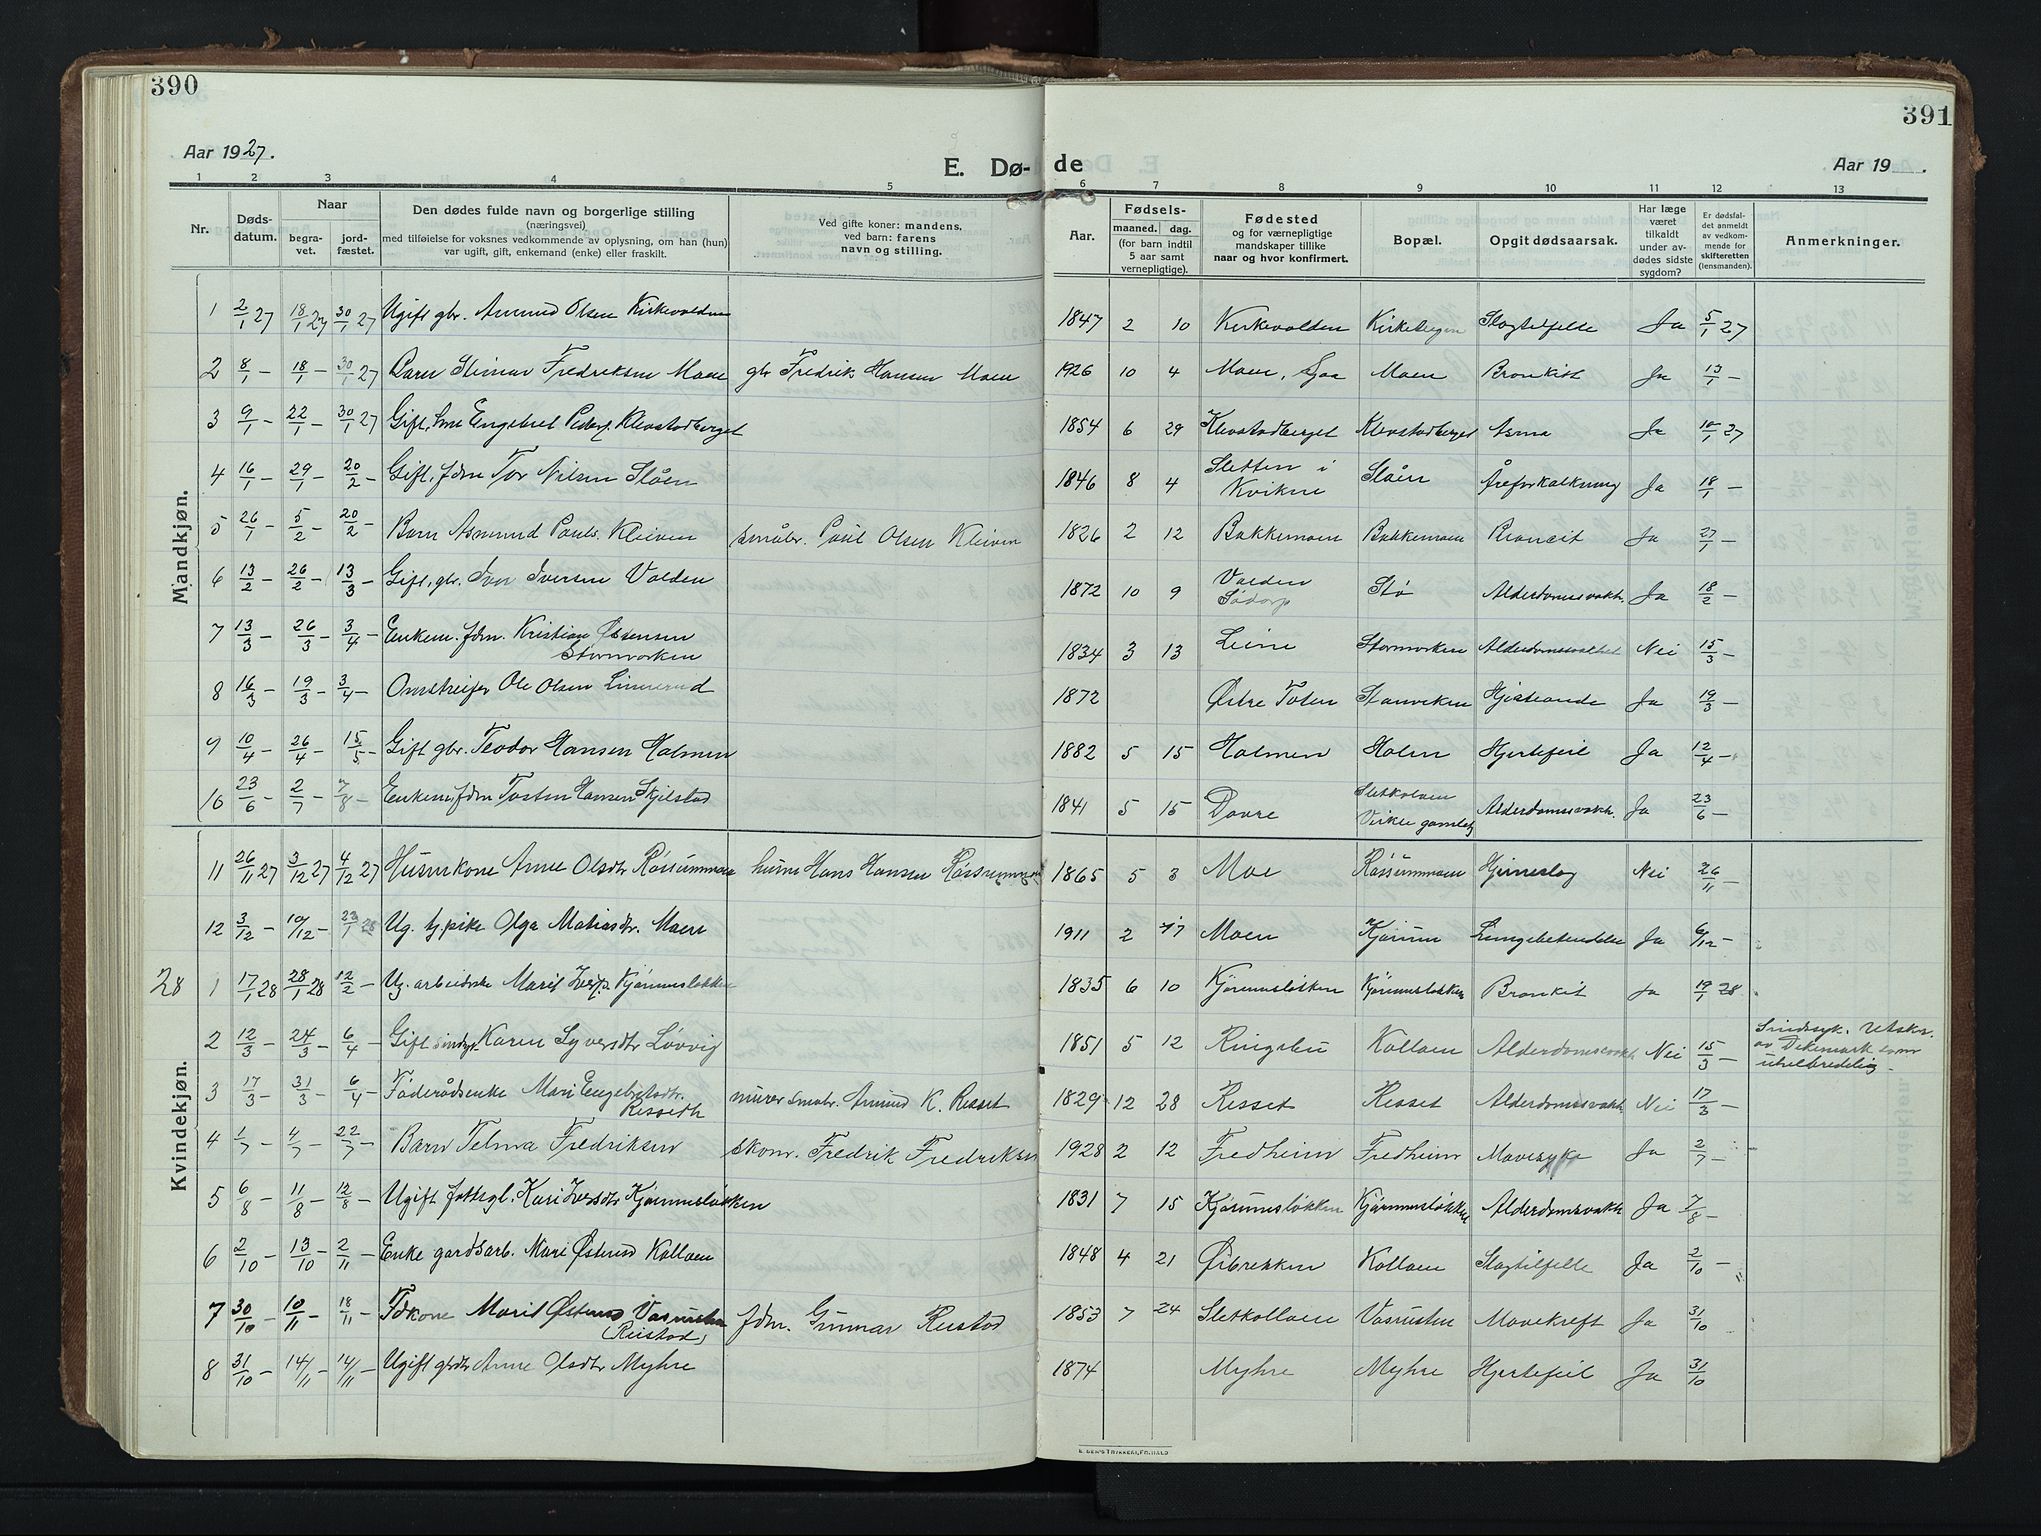 390
391
Aar 1927.
E. Dø-
de
Aar 19 .
1 2 3 4 5 6 7 8 9 10 11 12 13
Nr.
Døds-
datum.
Naar
begra-
vet.
jord-
fæstet.
Den dødes fulde navn og borgerlige stilling
(næringsvei)
med tilføielse for voksnes vedkommende av oplysning, om han (hun)
var ugift, gift, enkemand (enke) eller fraskilt.
Ved gifte koner: mandens,
ved barn: farens
navn og stilling.
Aar.
Fødsels-
maaned. dag.
(for barn indtil
5 aar samt
vernepligtige).
Fødested
og for værnepligtige
mandskaper tillike
naar og hvor konfirmert.
Bopæl.
Opgit dødsaarsak.
Har læge
været
tilkaldt
under av-
dødes sidste
sygdom?
Er dødsfal-
det anmeldt
av vedkom-
mende for
skifteretten
(lensmanden).
Anmerkninger.
Mandkjøn.
1 2/1 27 18/1 27 30/1 27 Ugift gbr. Amund Olsen Kirkevolden 1847 2 10 Kirkevolden Slagtilfelde Ja 5/1 27
2 8/1 – 18/1 – 30/1 27 Barn Steinar Fredriksen Moen gbr Fredrik Hansen Moen 1926 10 4 Moen, Sjoa Moen Bronkit Ja 13/1 –
3 9/1 – 22/1 – 30/1 27 Gift, Engebret Peders. Klevstadberget 1854 6 29 Klevstadberget Klevstadberget Asma Ja 10/1 27
4 16/1 – 29/1 – 20/2 – Gift, fdm Tor Nilsen Slåen 1846 8 4 Sletten i Kvikne Slåen Åreforkalkning Ja 18/1 –
5 26/1 – 5/2 – 20/2 – Barn Asmund Pauls. Kleiven småbr. Paul Olsen Kleiven 1826 2 12 Bakkemoen Bakkemoen Ja 27/1 –
6 13/2 – 26/2 – 13/3 – Gift, gbr. Iver Iversen Volden 1872 10 9 Volden Södorp Stø Alderdomssvakh. Ja 18/2 –
7 13/3 – 26/3 – 3/4 – Enkem. fdm. Kristian Østensen
Stormorken 1834 3 13 Leine Stormorken Alderdomssvakhet Nei 15/3 –
8 16/3 – 19/3 – 3/4 – Omstreifer Ole Olsen Linnerud 1872 Østre Toten Stamviken Ja 19/3 –
9 10/4 – 26/4 – 15/5 – Gift gbr. Teodor Hansen Holmen 1882 5 15 Holmen Holen Hjertefeil Ja 12/4 –
10 23/6 – 2/7 – 7/8 – Enkem, fdm Tosten Hansen Skjelstad 1841 5 15 Dovre Sletkolven Alderdomssvakh. Ja 23/6 –
Kvindekjøn.
11 26/11 27 3/12 27 4/12 27 Husmkone Anne Olsdtr Røssummoen husm Hans Hansen Røssummoen 1865 5 3 Moe Røssummoen Hjerneslag Nei 26/11 –
12 3/12 – 10/12 – 22/1 28 Ug. tj.pike Olga Matiasdtr. Moen 1911 2 17 Moen Kjørum Lungebetendelse Ja 6/12 –
28 1 17/1 28 28/1 28 12/2 – Ug. arbeiderske Marit Kjørumsløkken 1835 6 10 Kjørumsløkken Kjørumsløkken Bronkit Ja 19/1 28
2 12/3 – 24/3 – 6/4 – Gift sindsyk Karen Syversdtr Løvvig 1851 5 12 Ringebu Kolloen Alderdomssvakh. Nei 15/3 – Sindssyk. Utskr.
av Dikemark som
uhelbredelig –
3 17/3 – 31/3 – 6/4 – Føderådsenke Mari Engebretsdtr.
murer småbr. Amund K. Risset 1829 12 28 Risset Risset Alderdomssvakh. Nei 17/3 –
4 1/7 – 4/7 – 22/7 – Barn Telma Fredriksen skom. Fredrik Fredriksen 1928 2 12 Fredheim Fredheim Mavesyke Ja 2/7 –
5 6/8 – 11/8 – 12/8 – Ugift fattigl. Kari Iversdtr Kjørumsløkken 1831 7 15 Kjørumsløkken Kjørumsløkken Alderdomssvakh Ja 7/8 –
6 2/10 – 13/10 – 2/11 – Enke gardsarb. Mari Østensd Kolloen 1848 4 21 Øibrekken Kolloen Slagtilfelle Ja 2/10 –
7 30/10 – 10/11 – 18/11 – Fdkone Marit Østensd Vasrusten
(Reistad) fdm. Gunnar Reistad 1853 7 24 Sletkolloen Vasrusten Mavekreft Ja 31/10
8 31/10 – 14/11 – 14/11 – Ugift gbrdtr Anne Olsdtr Myhre 1874 Myhre Myhre Hjertefeil Ja 31/10